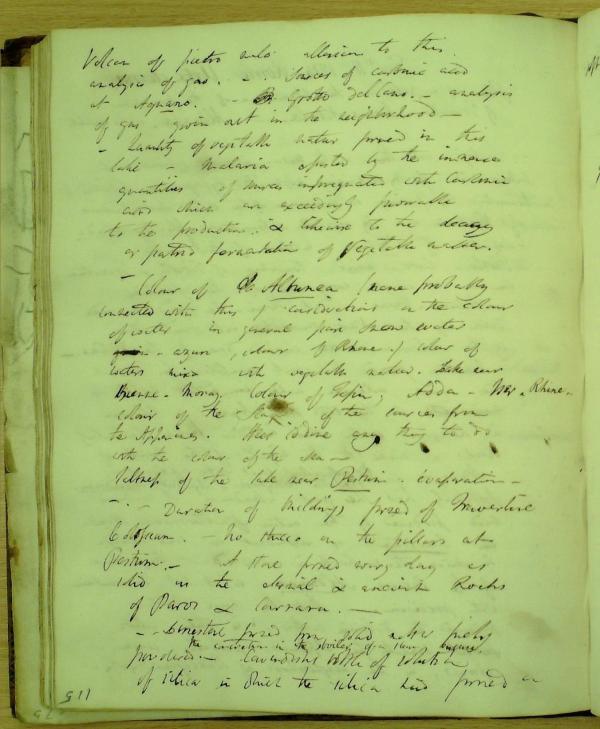 Volcan of pietra mala allusion to this.
analysis of gas. - Sources of carbonic acid
at Agnano. - Grotto del Cano. - analysis
of gas given out in the neighborhood -
- Quantity of vegetable matter formed in this
lake - Malaria by the immense
quantities of impregnated with Carbonic
acid which are exceedingly favorable
to the production & likewise to the decay
or putrid fermentation of Vegetable matter.
-
Colour of Albunea (name probably
connected with this) considerations on the colour
of water in general pure snow water
azure, colour of Rhone.) colour of
waters mixed with vegetable matter. Lake near
Brienne - Morat. Colour of , Adda - - Rhine -
colour of the of the sources from
the Appenines. Has iodine any thing to do
with the colour of the sea -
Saltness of the lake near Pestum - evaporation -
- - Duration of buildings formed of Travertine
Coliseum. - No stucco on the pillars at
Pestum. - A stone formed every day as
solid as the eternal & ancient Rocks
of Paros & Carrara. -
- Limestone formed from solid matter finely
powdered -
the in the boiling of a
Cavendishs bottle of solution
of silica in which the silica had formed a
115